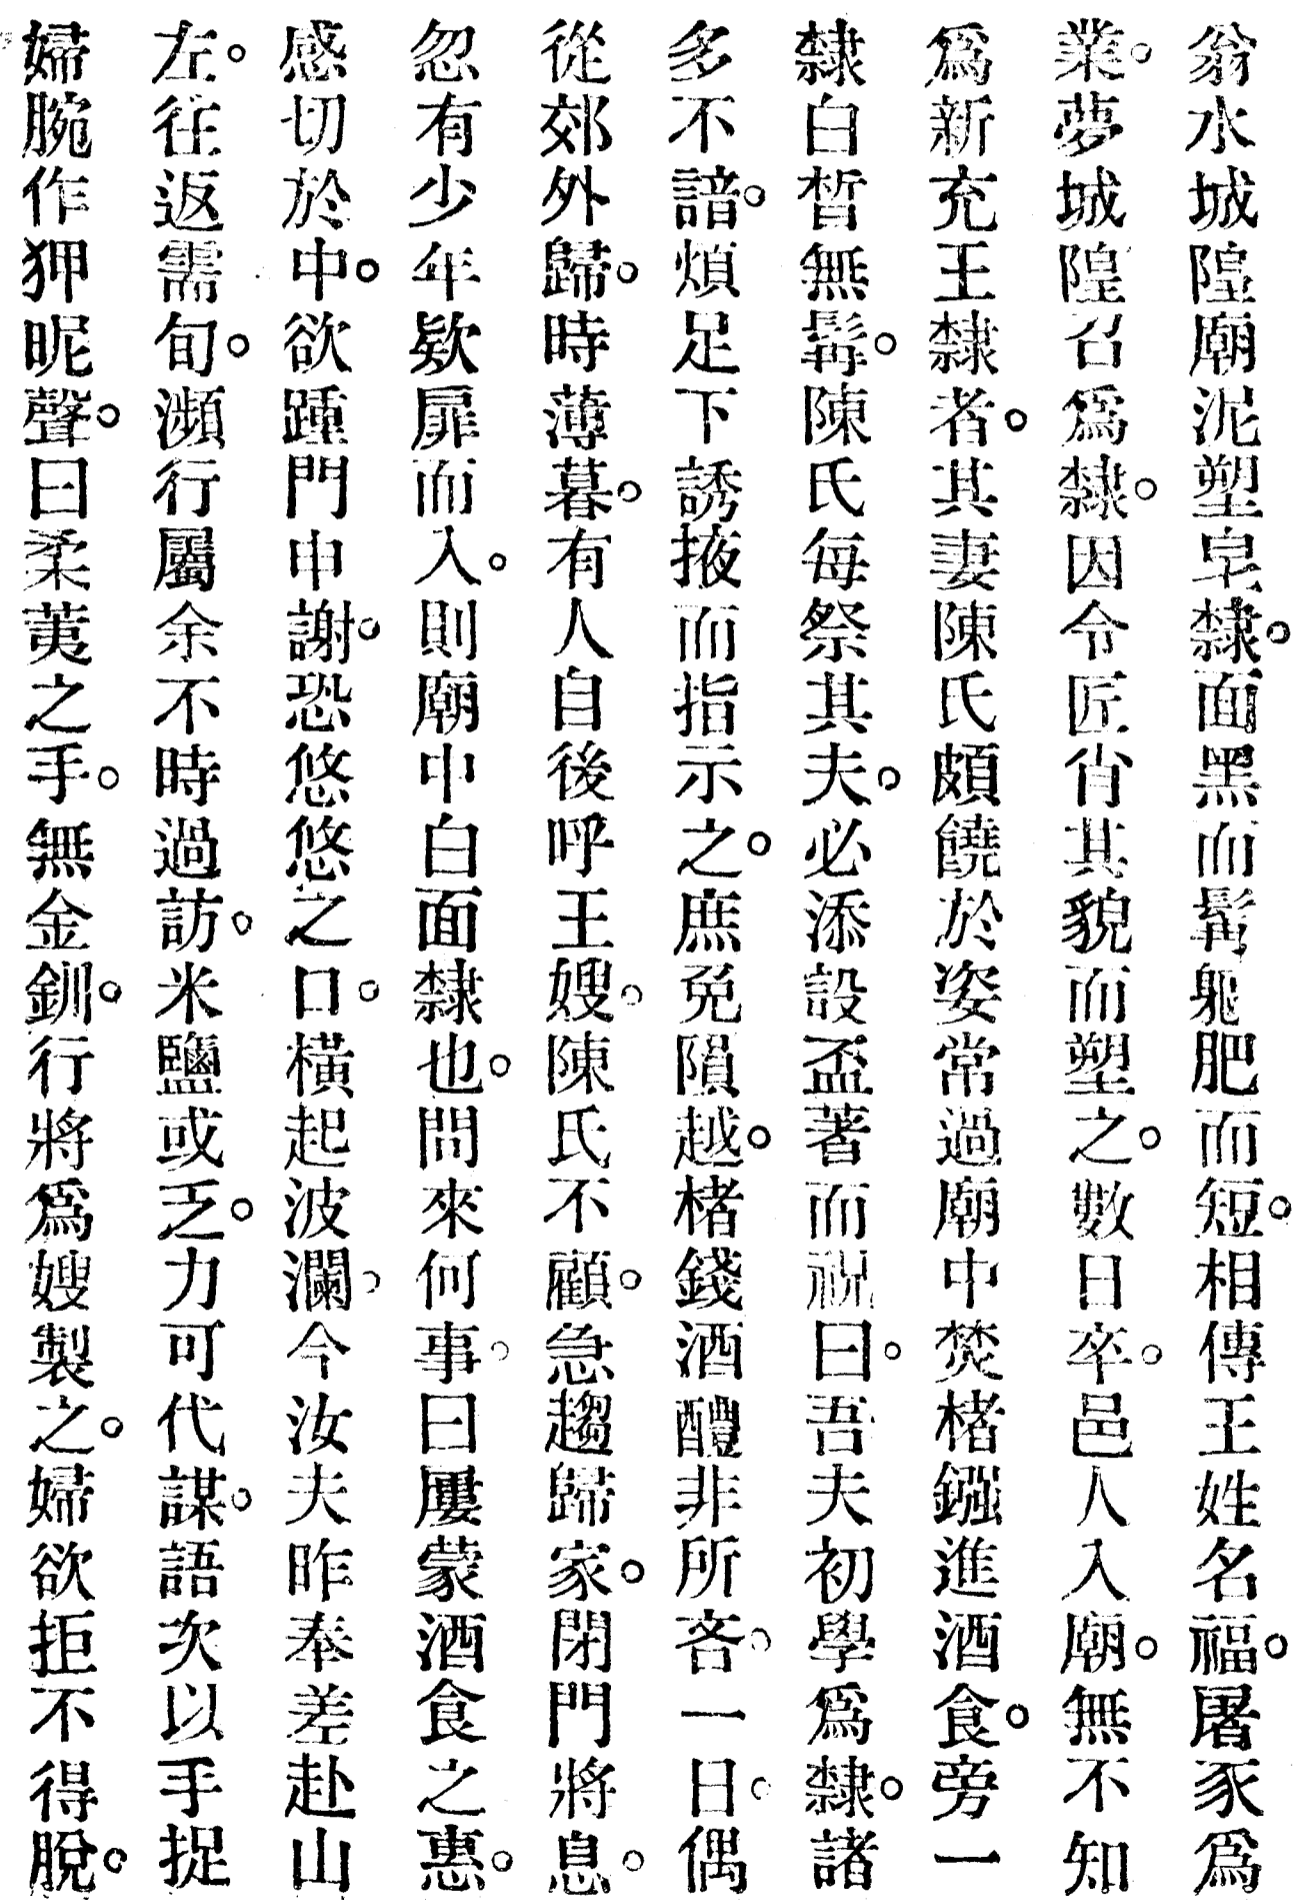 翁水城隍廟泥塑皁隸。面黑而髯。軀肥而短。相傳王姓名福。屠豕爲
業。夢城隍召爲隸。因令匠肖其貌而塑之。數日卒。邑人入廟。無不知
爲新充王隸者。其妻陳氏頗饒於姿常過廟中焚楮鏹進酒食。旁一
隸白晳無髯。陳氏每祭其夫。必添設盃著而祝曰。吾夫初學爲隸。諸
多不諳。煩足下誘掖而指示之。庶免隕越。楮錢酒醴非所吝。一日。偶
從郊外歸。時薄暮。有人自後呼王嫂。陳氏不顧。急趨歸家。閉門將息。
忽有少年欵扉而入。則廟中白面隸也。問來何事。曰屢蒙酒食之惠。
感切於中。欲踵門申謝。恐悠悠之口。橫起波瀾。今汝夫昨奉差赴山
左。往返需旬。瀕行屬余不時過訪。米鹽或乏。力可代謀。語次以手捉
婦腕作狎昵聲。曰柔荑之手。無金釧。行將爲嫂製之。婦欲拒不得脫。